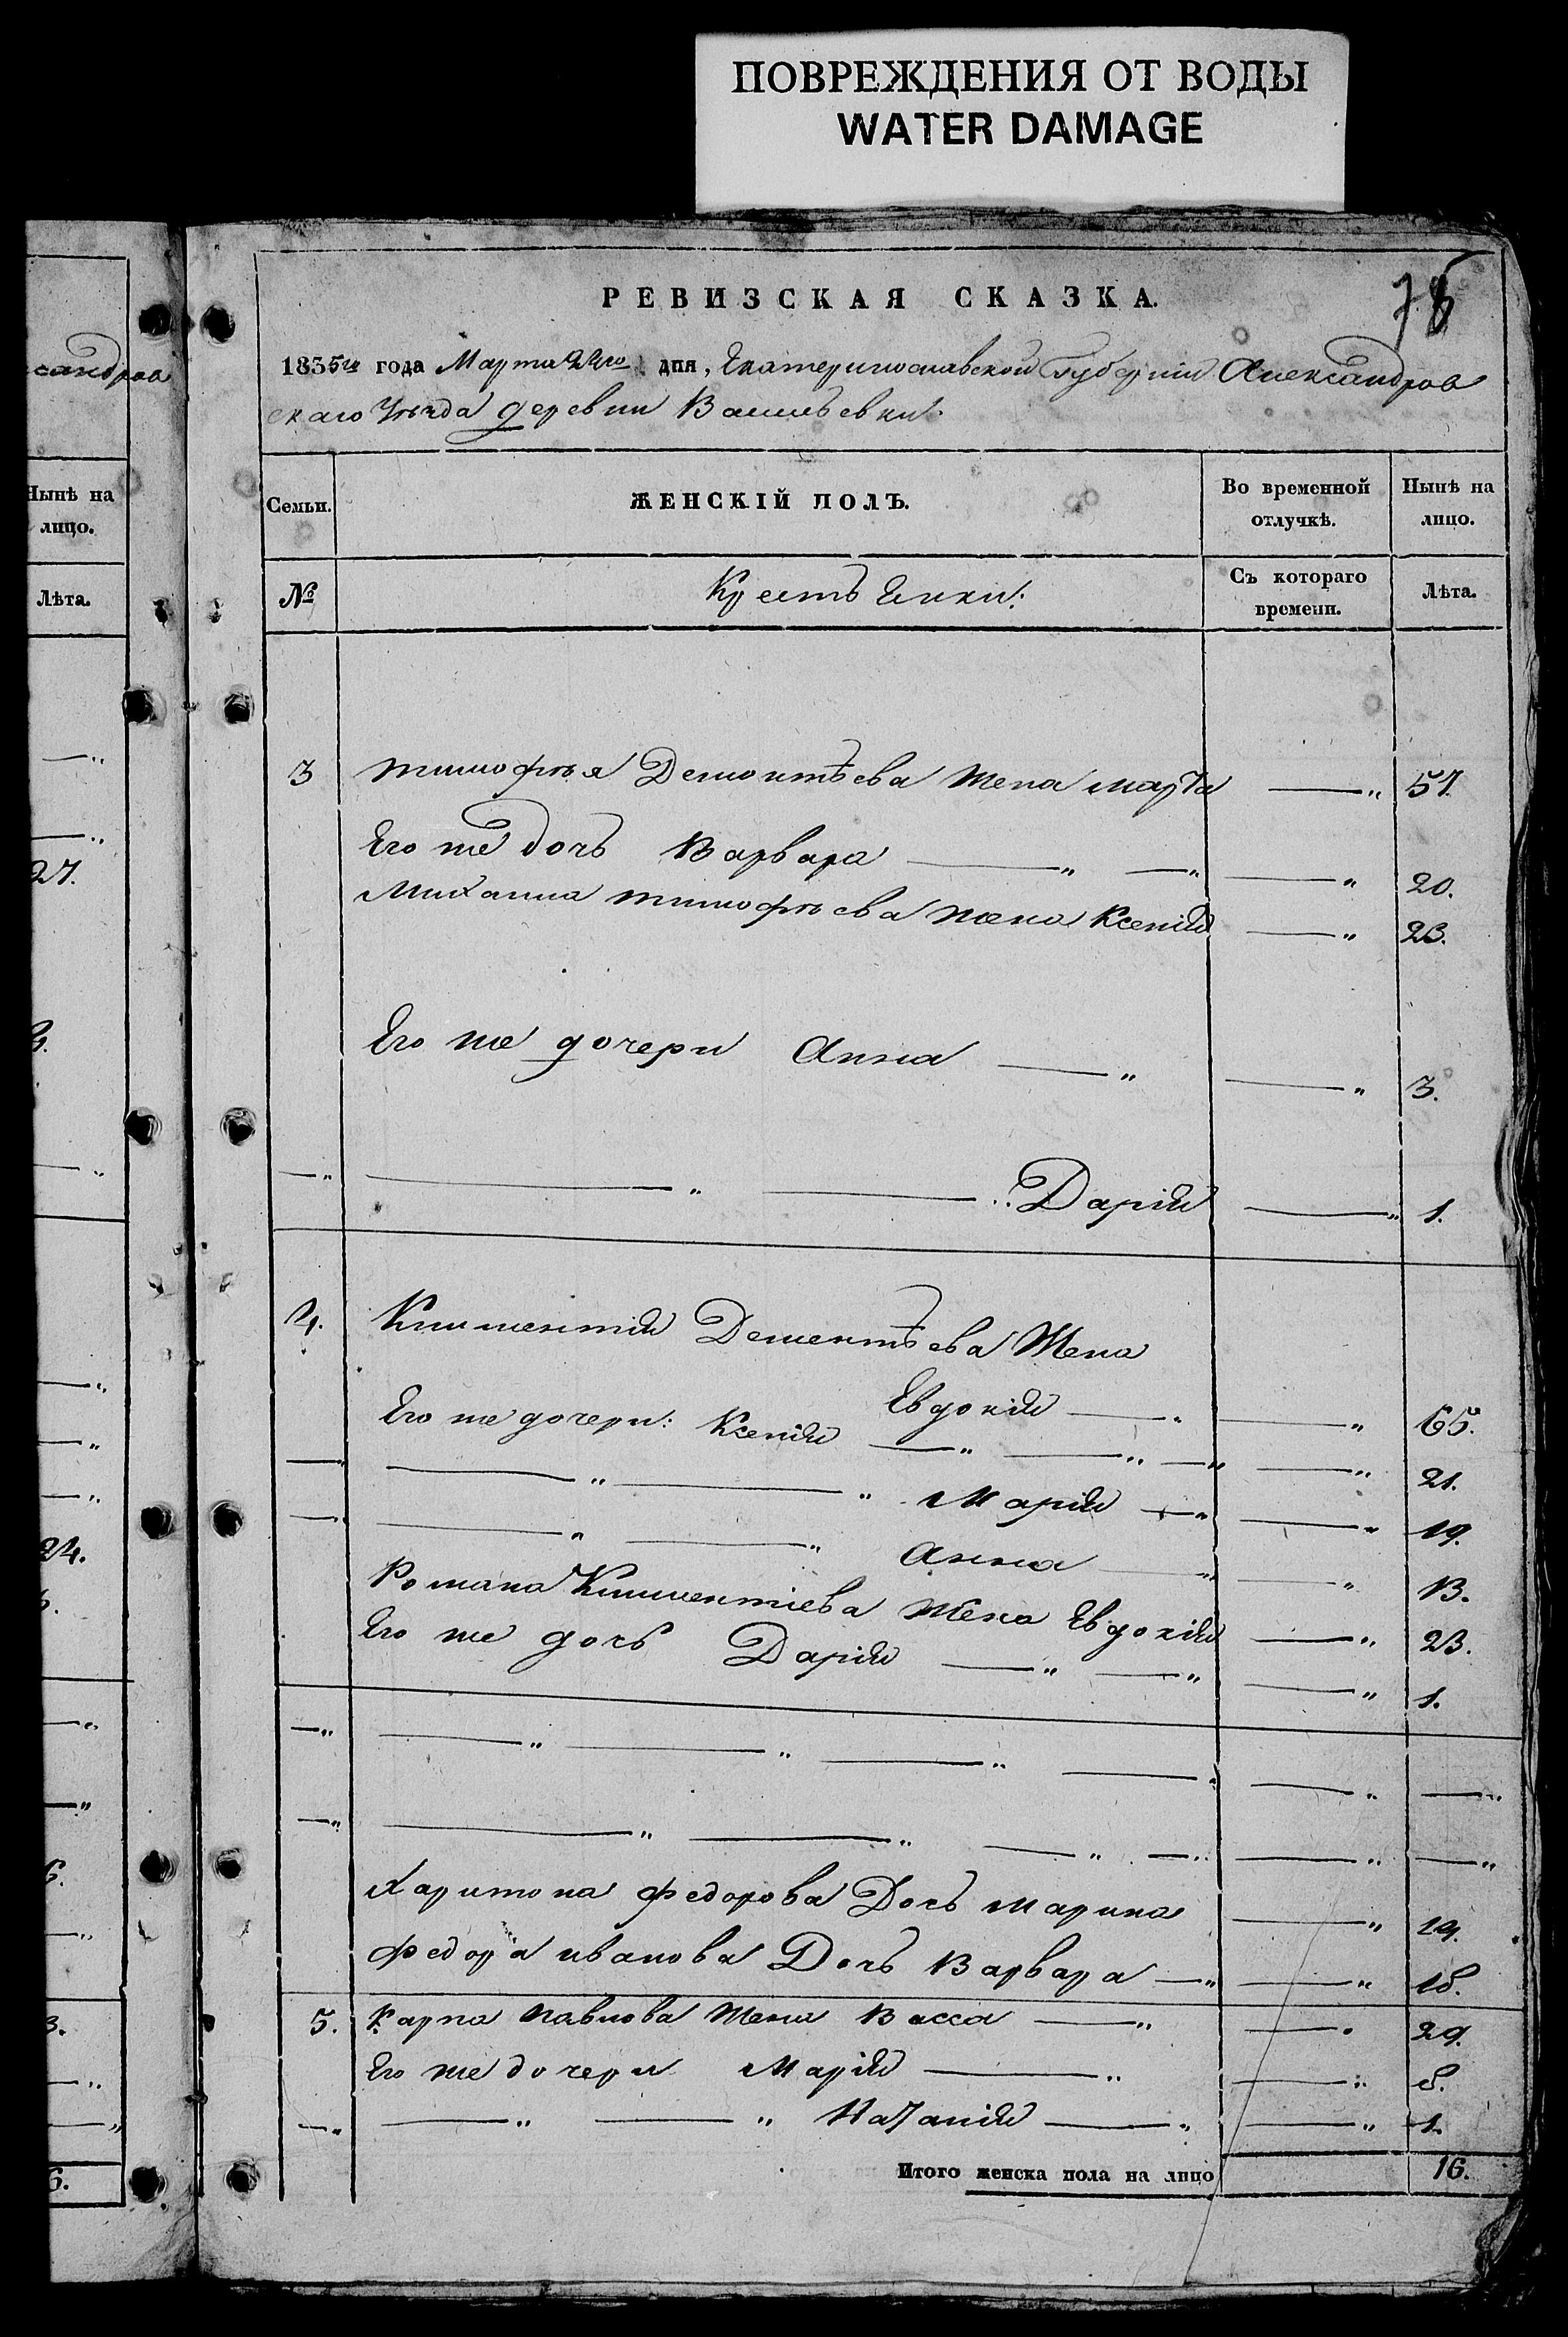 ПОВРЕЖДЕНИЯ ОТ ВОДЫ
WATER DAMAGE
РЕВИЗСКАЯ СКАЗКА.
1835го года Марта 22го дня, Екатеринославской Губернiи Александров
скаго Уѣзда деревни Васильевки.
Семьи. ЖЕНСКІЙ ПОЛЪ. Во временной отлучкѣ. Нынѣ на лицо.
№ Крестьянки: Съ котораго времени. Лѣта.
3 Тимофѣя Дементьева Жена Марѳа —„ 57.
Его же дочь Варвара —„ —„ —„ 20.
Михаила Тимофѣева жена Ксенія —„ 23.
Его же дочери Анна —„ —„ 3.
—„ —„ — Дарія —„ 1.
4. Климентія Дементьева Жена
Евдокія —„ —„ 65.
Его же дочери: Ксенія —„ —„ —„ —„ 21.
—„ —„ —„ Марія —„ —„ 19.
—„ —„ —„ Анна —„ —„ 13.
Романа Климентіева Жена Евдокія —„ 23.
Его же дочь Дарія —„ —„ —„ 1.
—„ —„ —„ —„ —„ —„ —„
—„ —„ —„ —„ —„ —„ —„
Харитона Федорова Дочь Марина —„ 19.
Федора Иванова Дочь Варвара —„ —„
5. Карпа Павлова Жена Васса —„ —„ 29.
Его же дочери Марія —„ —„
—„ —„ —„ Наѳанія —„ —„ 1.
Итого женска пола на лицо 16.
сандров
Нынѣ на
лицо.
Лѣта.
27.
24.